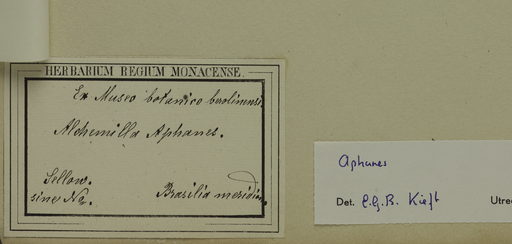 HERBARIUM REGIUM MONACENSE.
Ex Museo botanico berolinensi
Alchemilla Aphanes.
Sellow.
sine No.
Brasilia meridion.
Aphanes
Det. C.G.B. Kieft
Utrec